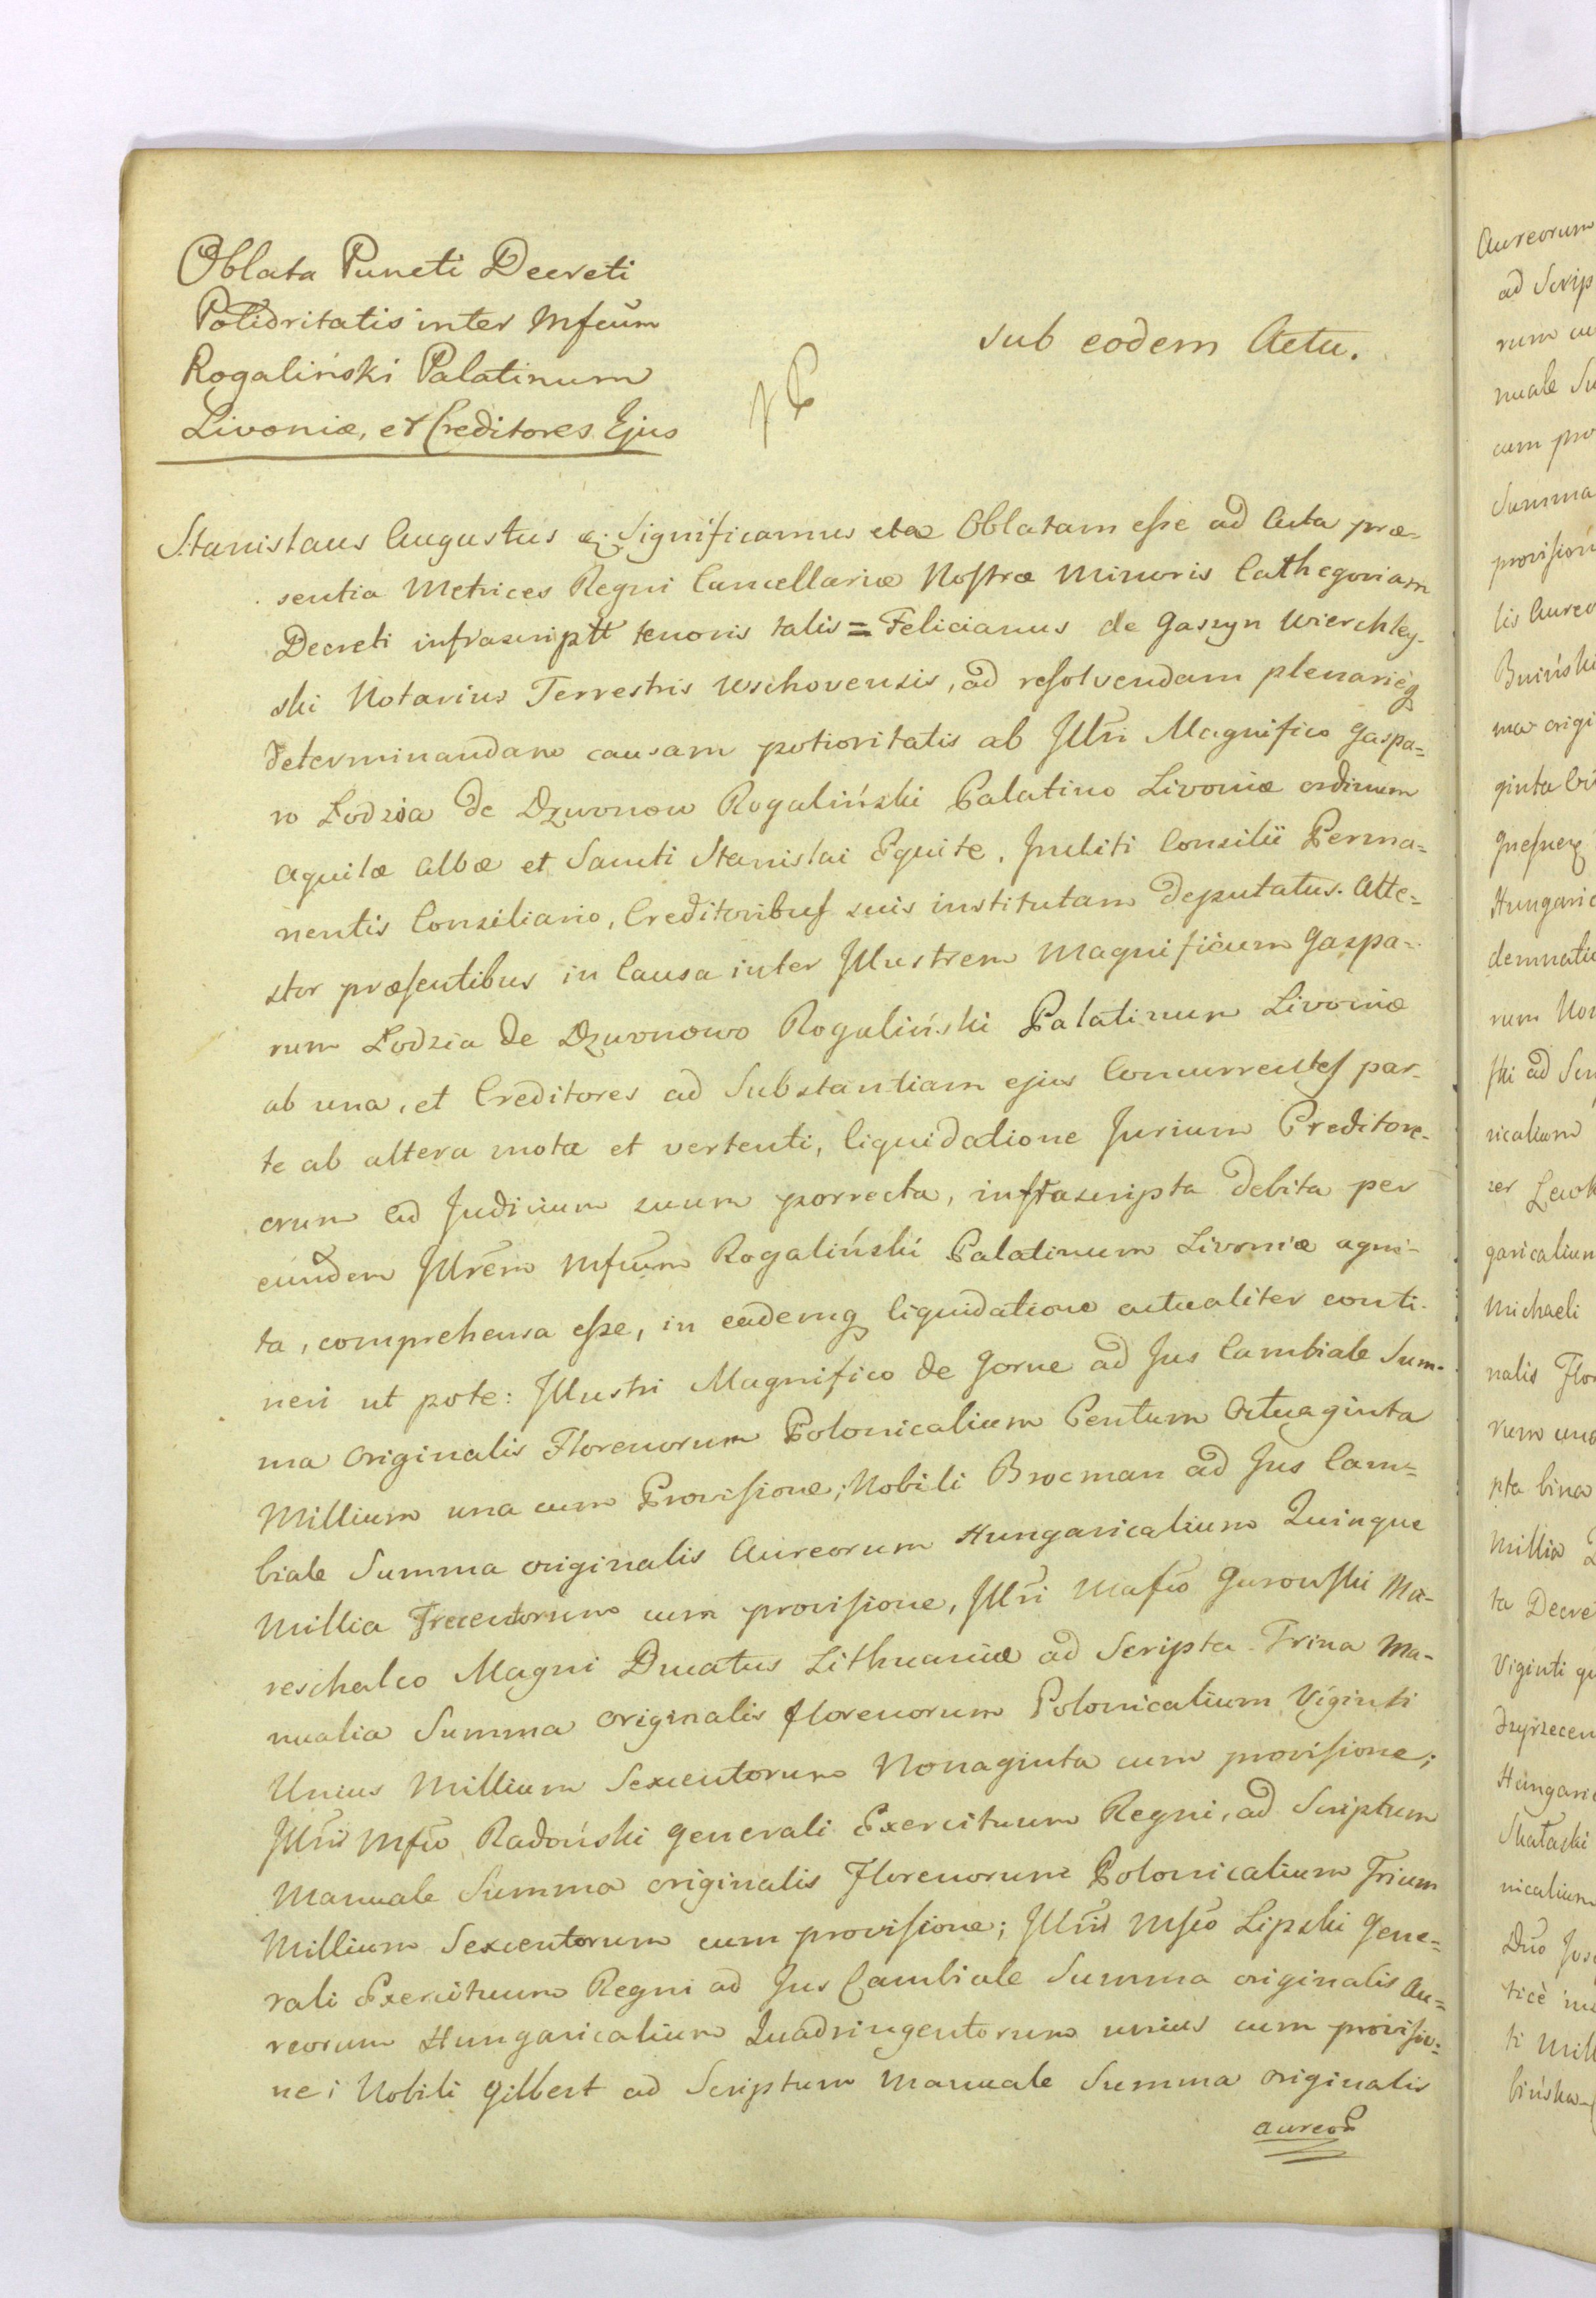 Oblata Puncti Decreti
Potioritatis inter Mfcum
Rogaliński Palatinum
Livoniæ, et Creditores Ejus
sub eodem Actu.
Stanislaus Augustus &. Significamus etca Oblatam eſse ad Acta præ=
sentia Metrices Regni Cancellariæ Noſtræ Minoris Cathegoriam
Decreti infrascriptt tenoris talis = Felicianus de Gaszyn Wierchley-
ski Notarius Terrestris Wschovensis, ad reſolvendam plenarièq
determinandam causam potioritatis ab Jllri Magnifico Gaspa=
ro Łodzia de Dzwonow Rogaliński Palatino Livoniæ ordinum
Aquilæ Albæ et Sancti Stanislai Equite, Jncliti Consilii Perma=
nentis Consiliario, Creditoribuſ suis institutam deputatus. Atte=
stor præſentibus in Causa inter Jllustrem Magnificum Gaspa=
rum Łodzia de Dzwonowo Rogaliński Palatinum Livoniæ
ab una, et Creditores ad Substantiam ejus Concurrenteſ par-
te ab altera mota et vertenti, liquidatione Jurium Creditore-
orum ad Judicium suum porrecta, infrascripta debita per
eundem Jllrem Mfcum Rogaliński Palatinum Livoniæ agni-
ta, comprehensa eſse, in eademq liquidatione actualiter conti-
neri ut pote: Jllustri Magnifico de Gorne ad Jus Cambiale Sum-
ma Originalis Florenorum Polonicalium Centum Octuaginta
Millium una cum Proviſione; Nobili Brocman ad Jus Cam=
biale Summa originalis Aureorum Hungaricalium Quinque
Millia Trecentorum cum proviſione, Jllri Mafco Gurowſki Ma-
reschalco Magni Ducatus Lithuaniæ ad Scripta Trina Ma-
nualia Summa Originalis florenorum Polonicalium Viginti
Unius Millium Sexcentorum Nonaginta cum proviſione;
Jllri Mfco Radoński Generali Exercituum Regni, ad Scriptum
Manuale Summa originalis Florenorum Polonicalium Trium
Millium Sexcentorum cum proviſione; Jllri Mfco Lipski Gene=
rali Exercituum Regni ad Jus Cambiale Summa originalis Au=
reorum Hungaricalium Quadringentorum unius cum proviſio=
ne; Nobili Gilbert ad Scriptum Manuale Summa originalis
aureor
Aureorum
ad Scrip
rum cu
nuale Su
cum pro
Summa
proviſion
lis Aureo
Bniński
ma origi
ginta
Hungaric
demnatio
rum
ſki ad
ricalium
garicalium
Michaeli
nalis Flor
rum una
pta bina
Millia
ta Decre
Viginti qu
Hungaric
nicalium